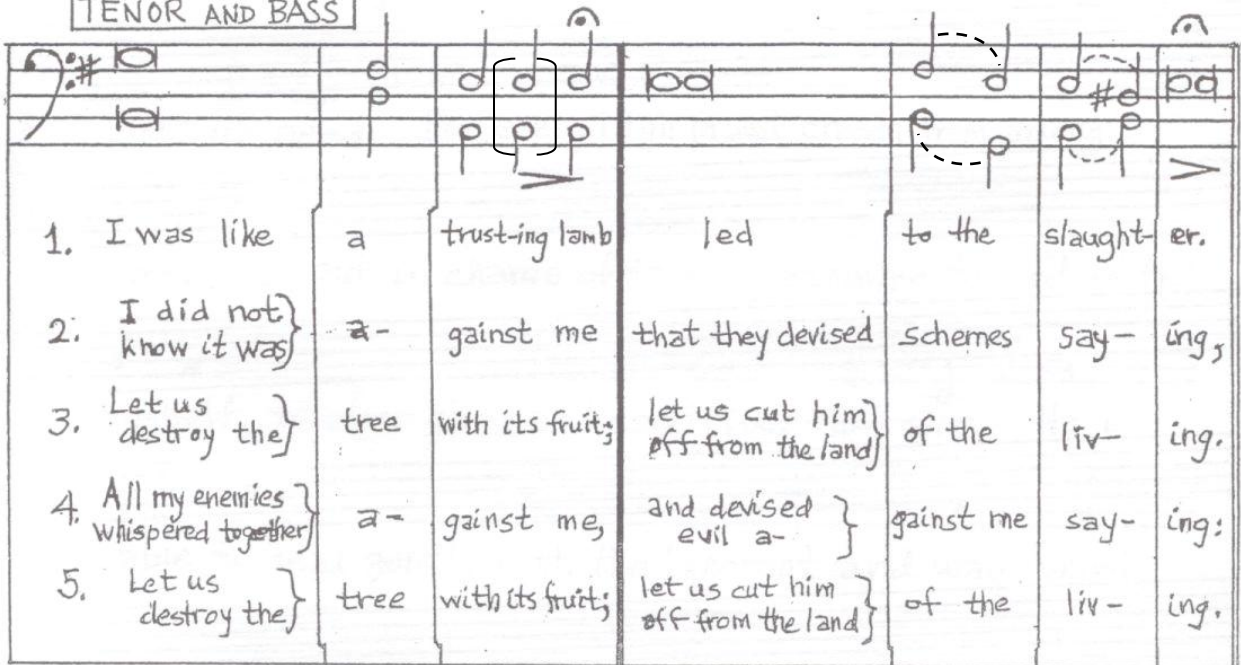 TENOR AND BASS
1. I was like a trust-ing lamb led to the slaught- er.
2. I did not know it was} a- gainst me that they devised schemes say- ing,
3. Let us destroy the} tree with its fruit; let us cut him off from the land} of the liv- ing.
4. All my enemies whispered together} a- gainst me, and devised evil a-} gainst me say- ing:
5. Let us destroy the} tree with its fruit; let us cut him off from the land} of the liv- ing.